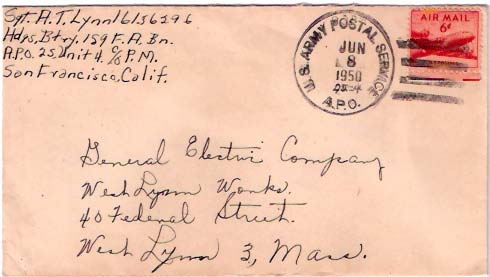 Sgt. A. T. Lynn 16136296
Hdqs. Btry. 159 F. A. Bn.
A.P.O. 25, Unit 4, c/o P.M.
San Francisco, Calif.
U.S. ARMY POSTAL SERVICE
JUN
8
1950
A.P.O.
AIR MAIL
6¢
General Electric Company
West Lynn Works.
40 Federal Street.
West Lynn 3, Mass.